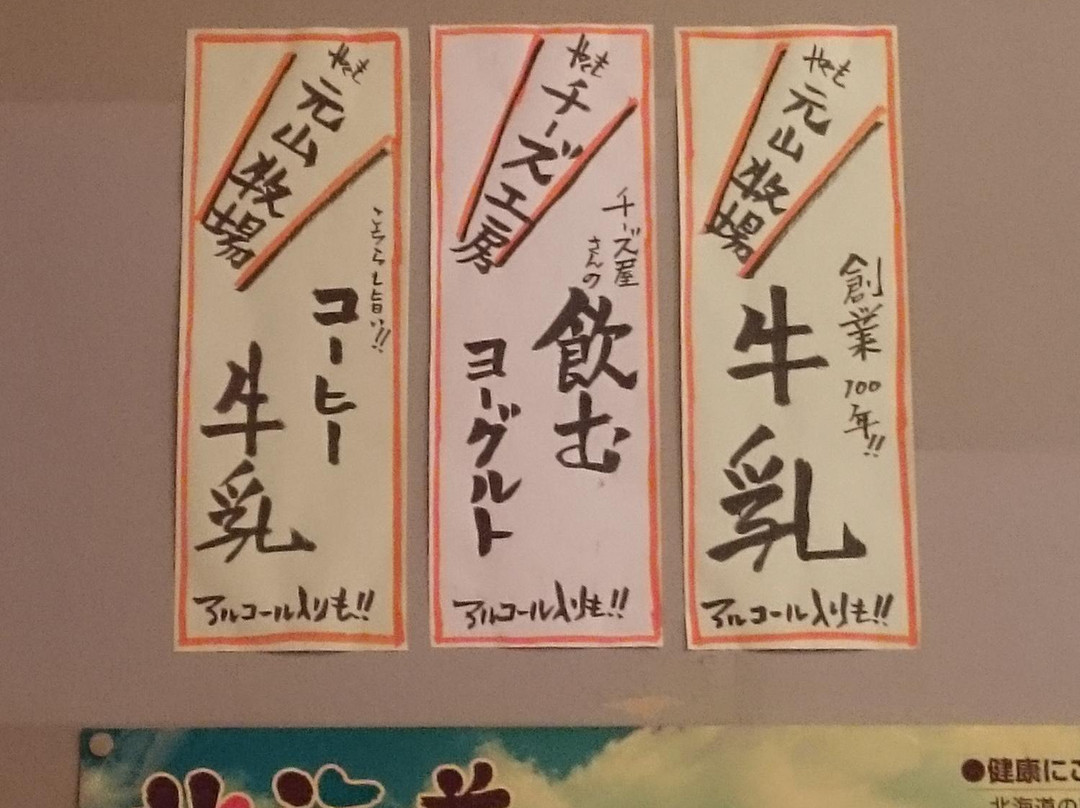 やくも
元山牧場
創業100年!!
牛乳
アルコール入りも!!
やくも
チーズ工房
チーズ屋
さんの
飲む
ヨーグルト
アルコール入りも!!
やくも
元山牧場
こちらも旨い!!
コーヒー
牛乳
アルコール入りも!!
●健康にこ
北海道の